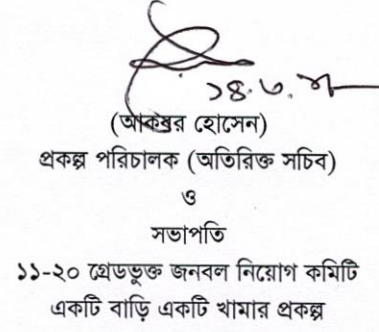 ১৪.৩.
(আকবর হোসেন)
প্রকল্প পরিচালক (অতিরিক্ত সচিব)
ও
সভাপতি
১১-২০ গ্রেডভুক্ত জনবল নিয়োগ কমিটি
একটি বাড়ি একটি খামার প্রকল্প